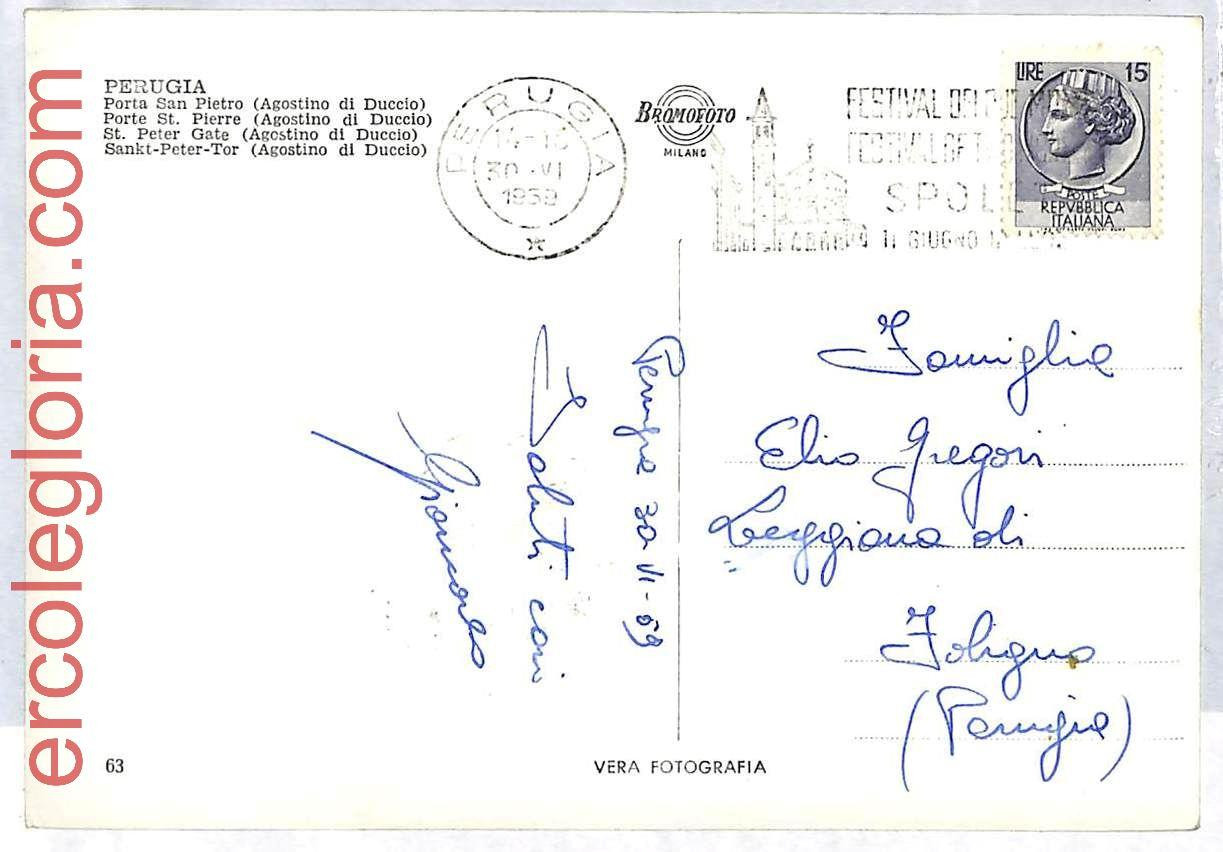 PERUGIA
Porta San Pietro (Agostino di Duccio)
Porte St. Pierre (Agostino di Duccio)
St. Peter Gate (Agostino di Duccio)
Sankt-Peter-Tor (Agostino di Duccio)
PERUGIA
30 VI
1959
BROMOFOTO
MILANO
FESTIVAL DEI
FESTIVAL OF
SPOLE
11 GIUGNO
LIRE 15
POSTE
REPVBBLICA
ITALIANA
Perugia 30-VI-59
Saluti cari
Giancarlo
Famiglia
Elio Gregori
Leggiana di
Foligno
(Perugia)
63
VERA FOTOGRAFIA
ercolegloria.com